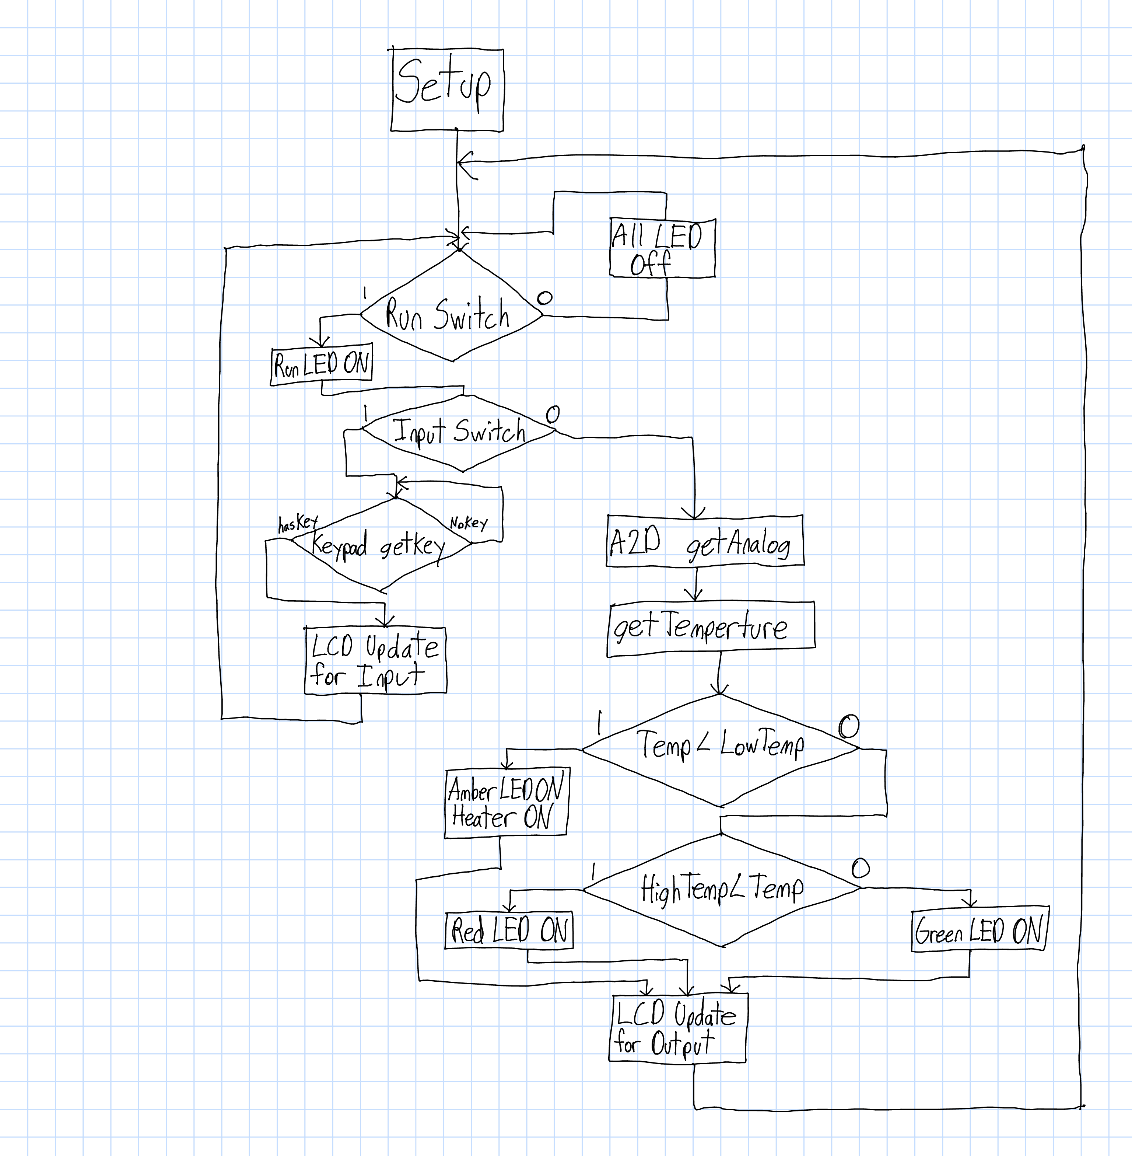 Setup
All LED
Off
1
0
Run Switch
Run LED ON
1
0
Input Switch
hasKey
NoKey
Keypad getKey
A2D getAnalog
LCD Update
for Input
getTemperture
1
0
Temp < LowTemp
Amber LED ON
Heater ON
1
0
HighTemp < Temp
Red LED ON
Green LED ON
LCD Update
for Output